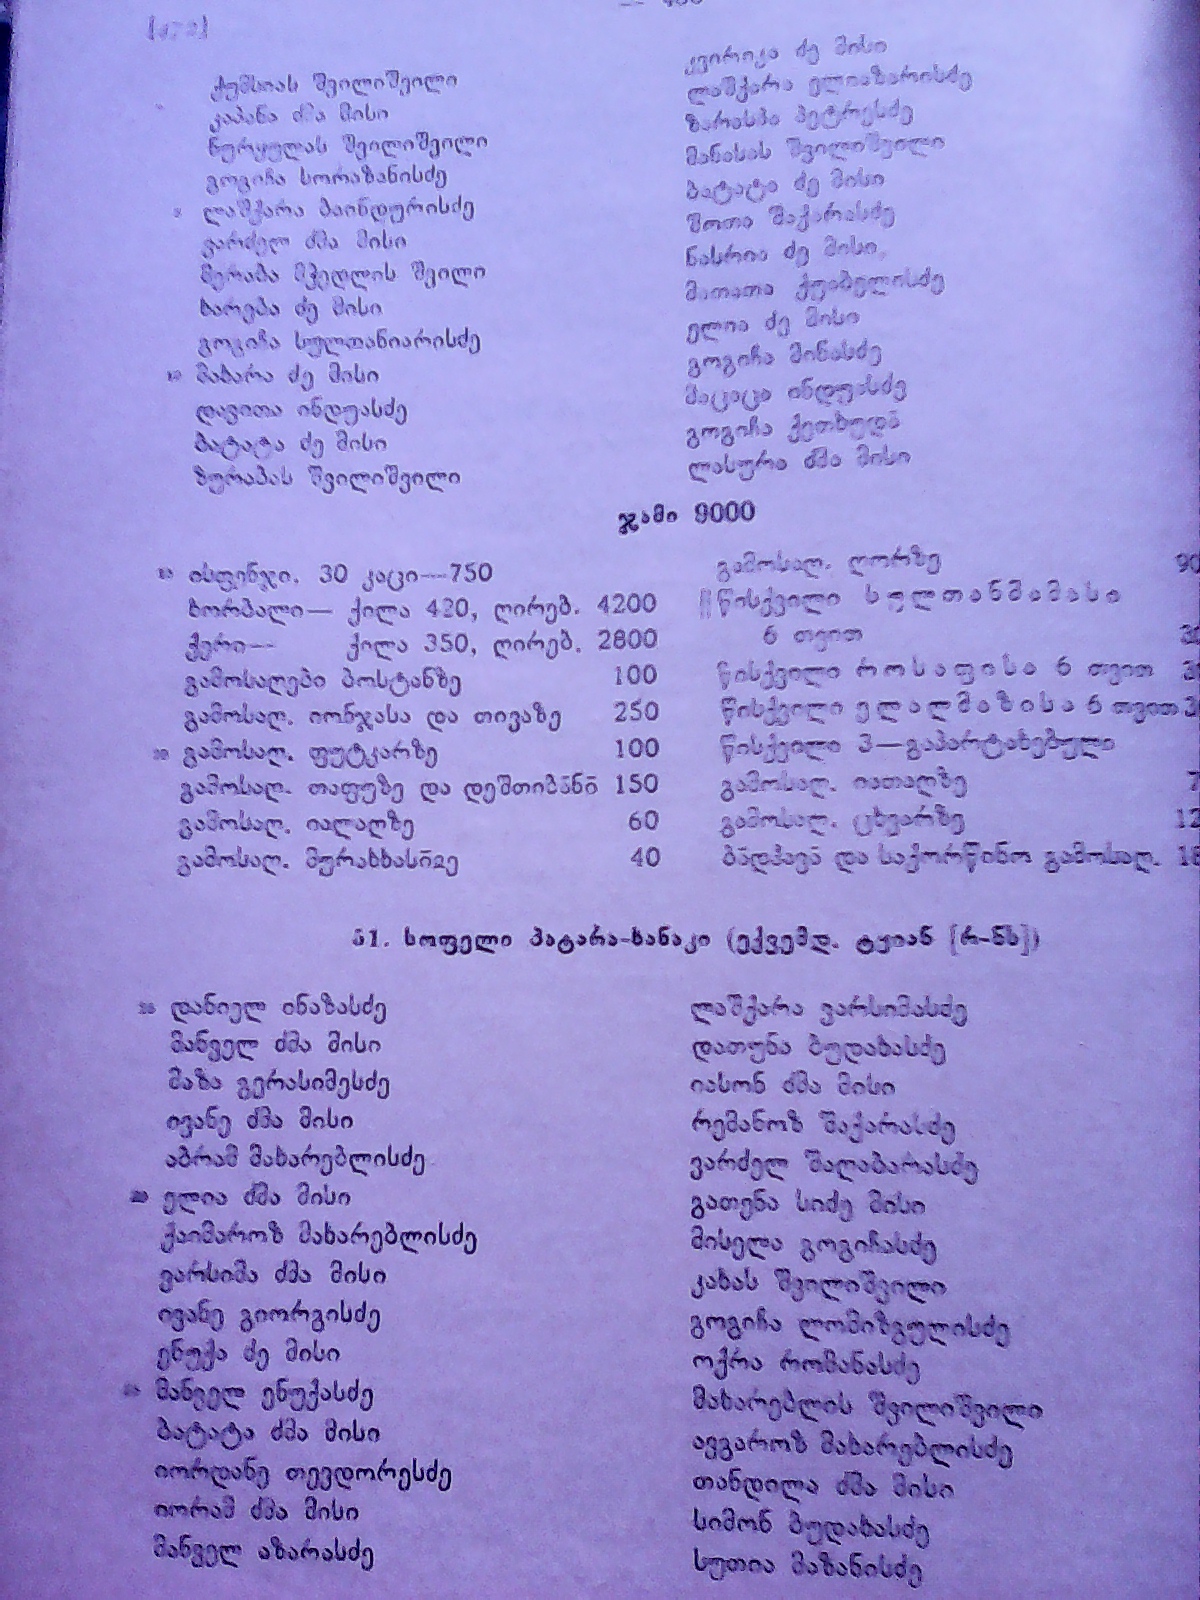 [472]
ქუმსიას შვილიშვილი
კაპანა ძმა მისი
ნურყულას შვილიშვილი
გოგიჩა სორაზანისძე
ლაშქარა ბაინდურისძე
ვარძელ ძმა მისი
მერაბა მჭედლის შვილი
ხარება ძე მისი
გოგიჩა სულთანიარისძე
მახარა ძე მისი
დავითა ინდუასძე
ბატატა ძე მისი
ზურაბას შვილიშვილი
კვირიკა ძე მისი
ლაშქარა ელიაზარისძე
ზარასპა პეტრესძე
მანასას შვილიშვილი
ბატატა ძე მისი
შოთა შაქარასძე
ნასრია ძე მისი
მათათა ქუაბელისძე
ელია ძე მისი
გოგიჩა მინასძე
მაცაცა ინდუასძე
გოგიჩა ქეთხუდა̄
ლასურა ძმა მისი
ჯამი 9000
ისფენჯი. 30 კაცი—750
ხორბალი— ქილა 420, ღირებ. 4200
ქერი— ქილა 350, ღირებ. 2800
გამოსაღები ბოსტანზე 100
გამოსაღ. იონჯასა და თივაზე 250
გამოსაღ. ფუტკარზე 100
გამოსაღ. თაფუზე და დეშთიბა̄ნო̄ 150
გამოსაღ. იალაღზე 60
გამოსაღ. მურახხასიჲე 40
გამოსაღ. ღორზე 90
‖ წისქვილი სულთანმამასი
6 თვით
წისქვილი როსაფისა 6 თვით
წისქვილი ელალმაზისა 6 თვით
წისქვილი 3—გაპარტახებული
გამოსაღ. იათაღზე
გამოსაღ. ცხვარზე 12
ბა̄დჰავა̄ და საქორწინო გამოსაღ.
51. სოფელი პატარა-ხანაკი (ექვემდ. ტყიან [რ-ნს])
დანიელ ინაზასძე
მანველ ძმა მისი
მაზა გერასიმესძე
ივანე ძმა მისი
აბრამ მახარებლისძე
ელია ძმა მისი
ქაიმაროზ მახარებლისძე
ვარსიმა ძმა მისი
ივანე გიორგისძე
ენუქა ძე მისი
მანველ ენუქასძე
ბატატა ძმა მისი
იორდანე თევდორესძე
იორამ ძმა მისი
მანველ აზარასძე
ლაშქარა ვარსიმასძე
დათუნა ბუდახასძე
იასონ ძმა მისი
რემანოზ შაქარასძე
ვარძელ შალაბარასძე
გათენა სიძე მისი
მისელა გოგიჩასძე
კახას შვილიშვილი
გოგიჩა ლომიზგულისძე
ოქრა რომანასძე
მახარებლის შვილიშვილი
ავგაროზ მახარებლისძე
თანდილა ძმა მისი
სიმონ ბუდახასძე
სუთია მაზანისძე